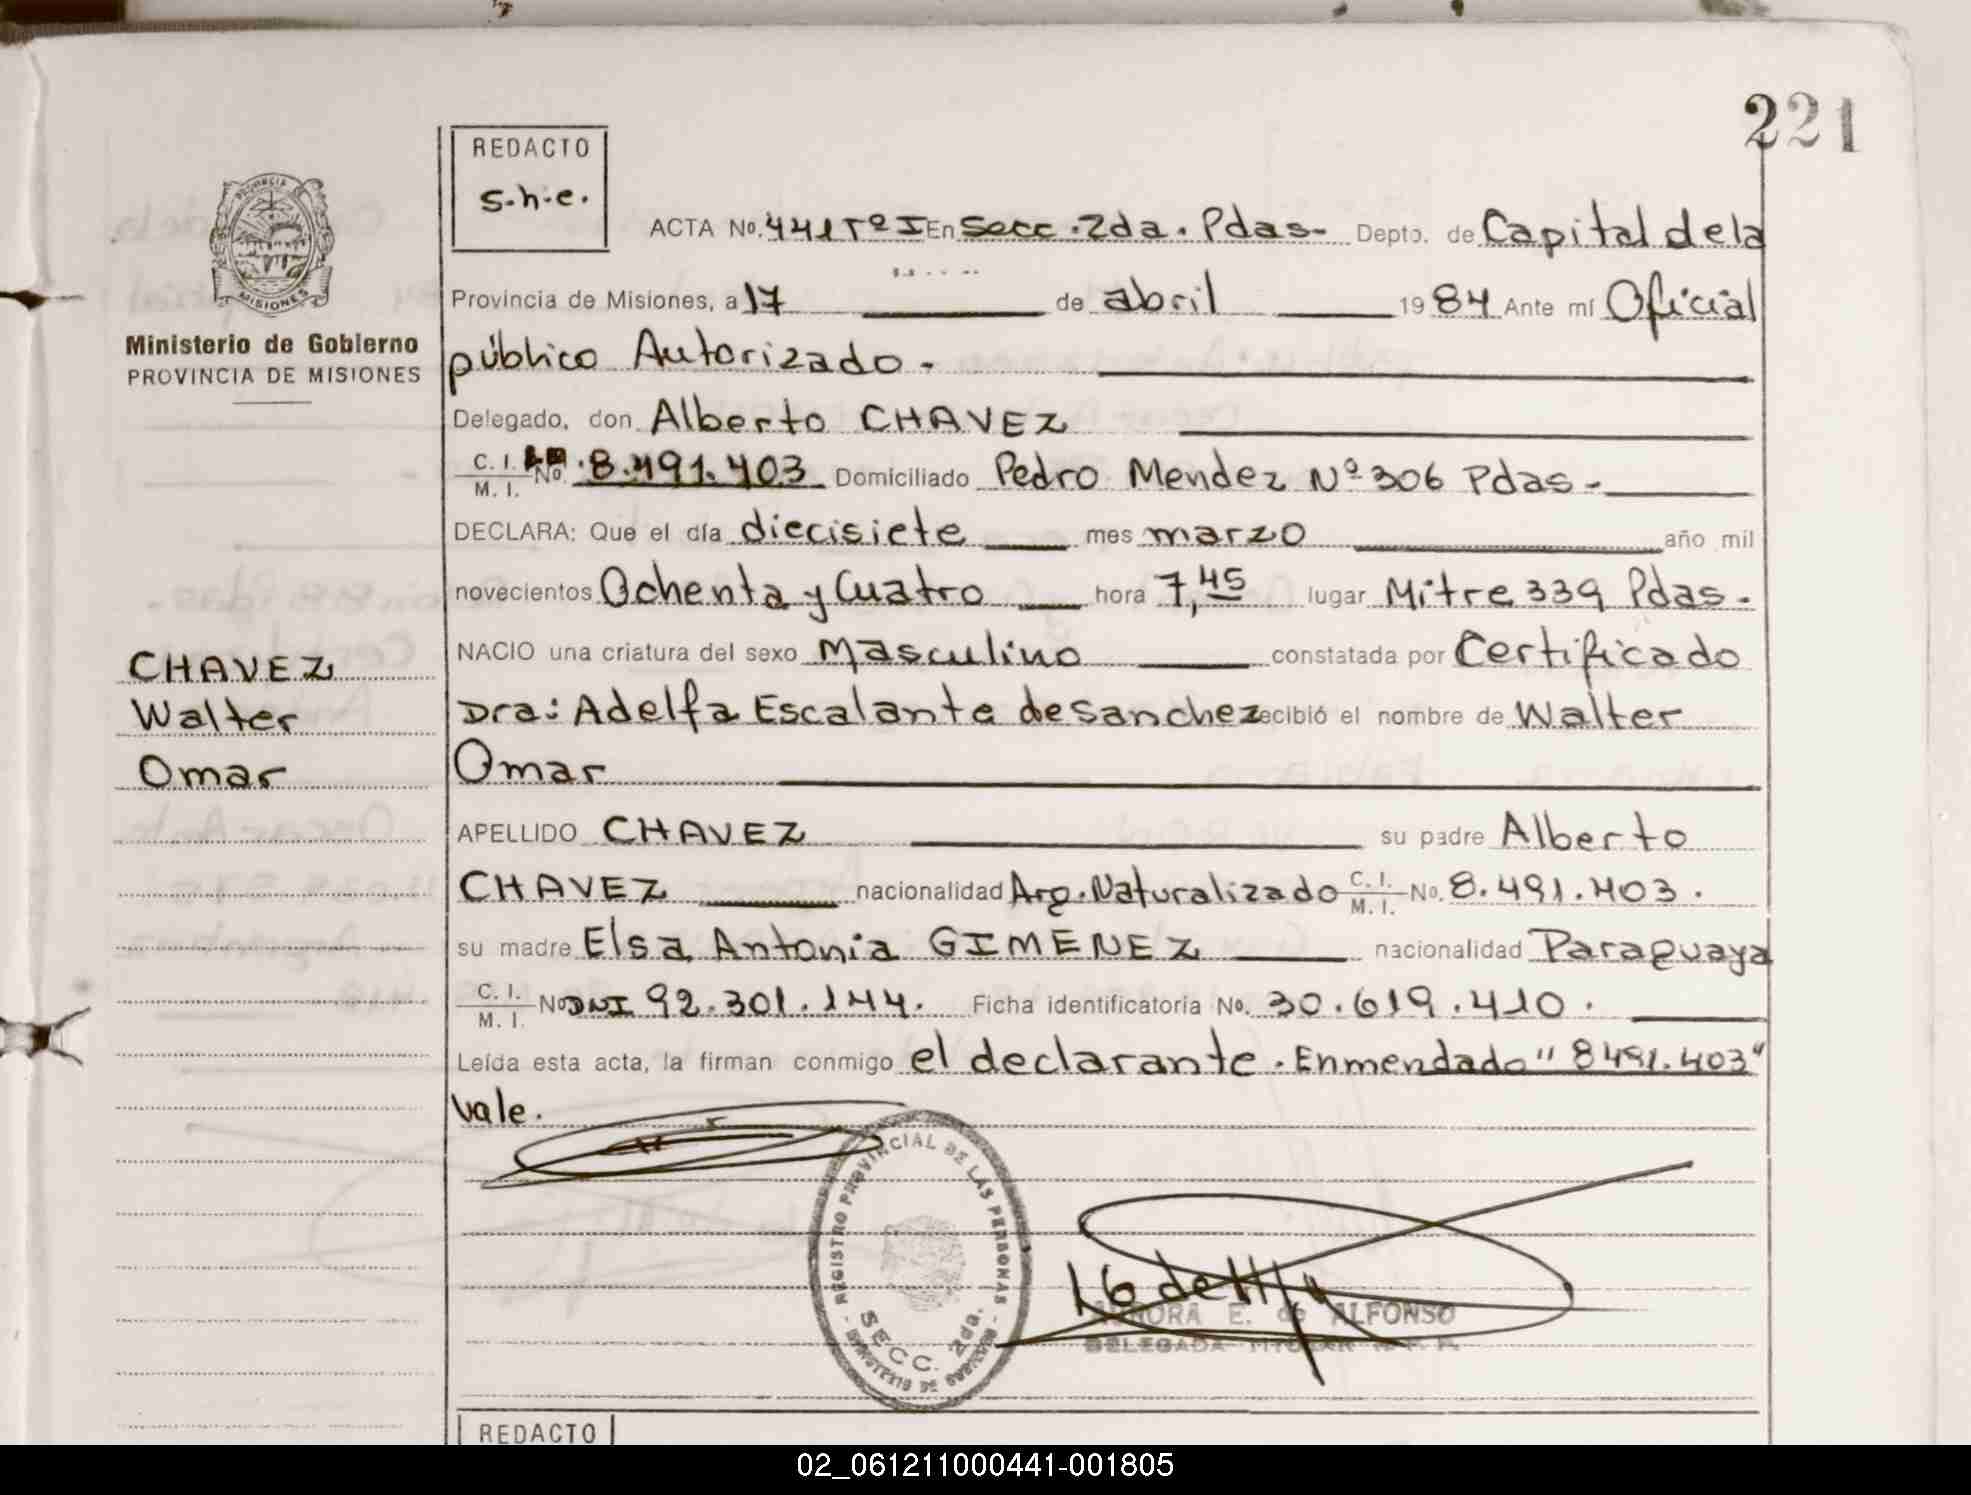 221
REDACTO
s.h.e.
ACTA No. 441 Tº I En Secc. 2da. Pdas- Depto. de Capital de la
Provincia de Misiones, a 17 de abril 1984 Ante mí Oficial
público Autorizado.-
Delegado, don Alberto CHAVEZ
C. I. / M. I. No. 8.491.403 Domiciliado Pedro Mendez Nº 306 Pdas-
DECLARA: Que el día diecisiete mes marzo año mil
novecientos Ochenta y Cuatro hora 7,45 lugar Mitre 339 Pdas.
NACIO una criatura del sexo Masculino constatada por Certificado
Dra: Adelfa Escalante de Sanchez recibió el nombre de Walter
Omar
APELLIDO CHAVEZ su padre Alberto
CHAVEZ nacionalidad Arg. Naturalizado C. I. / M. I. No. 8.491.403.
su madre Elsa Antonia GIMENEZ nacionalidad Paraguaya
C. I. / M. I. No DNI 92.301.144. Ficha identificatoria No. 30.619.410.
Leída esta acta, la firman conmigo el declarante. Enmendado "8491.403"
vale.
PROVINCIA
MISIONES
Ministerio de Gobierno
PROVINCIA DE MISIONES
CHAVEZ
Walter
Omar
REGISTRO PROVINCIAL DE LAS PERSONAS
SECC. 2da.
MINISTERIO DE GOBIERNO
AURORA E. de ALFONSO
DELEGADA TITULAR
REDACTO
02_061211000441-001805